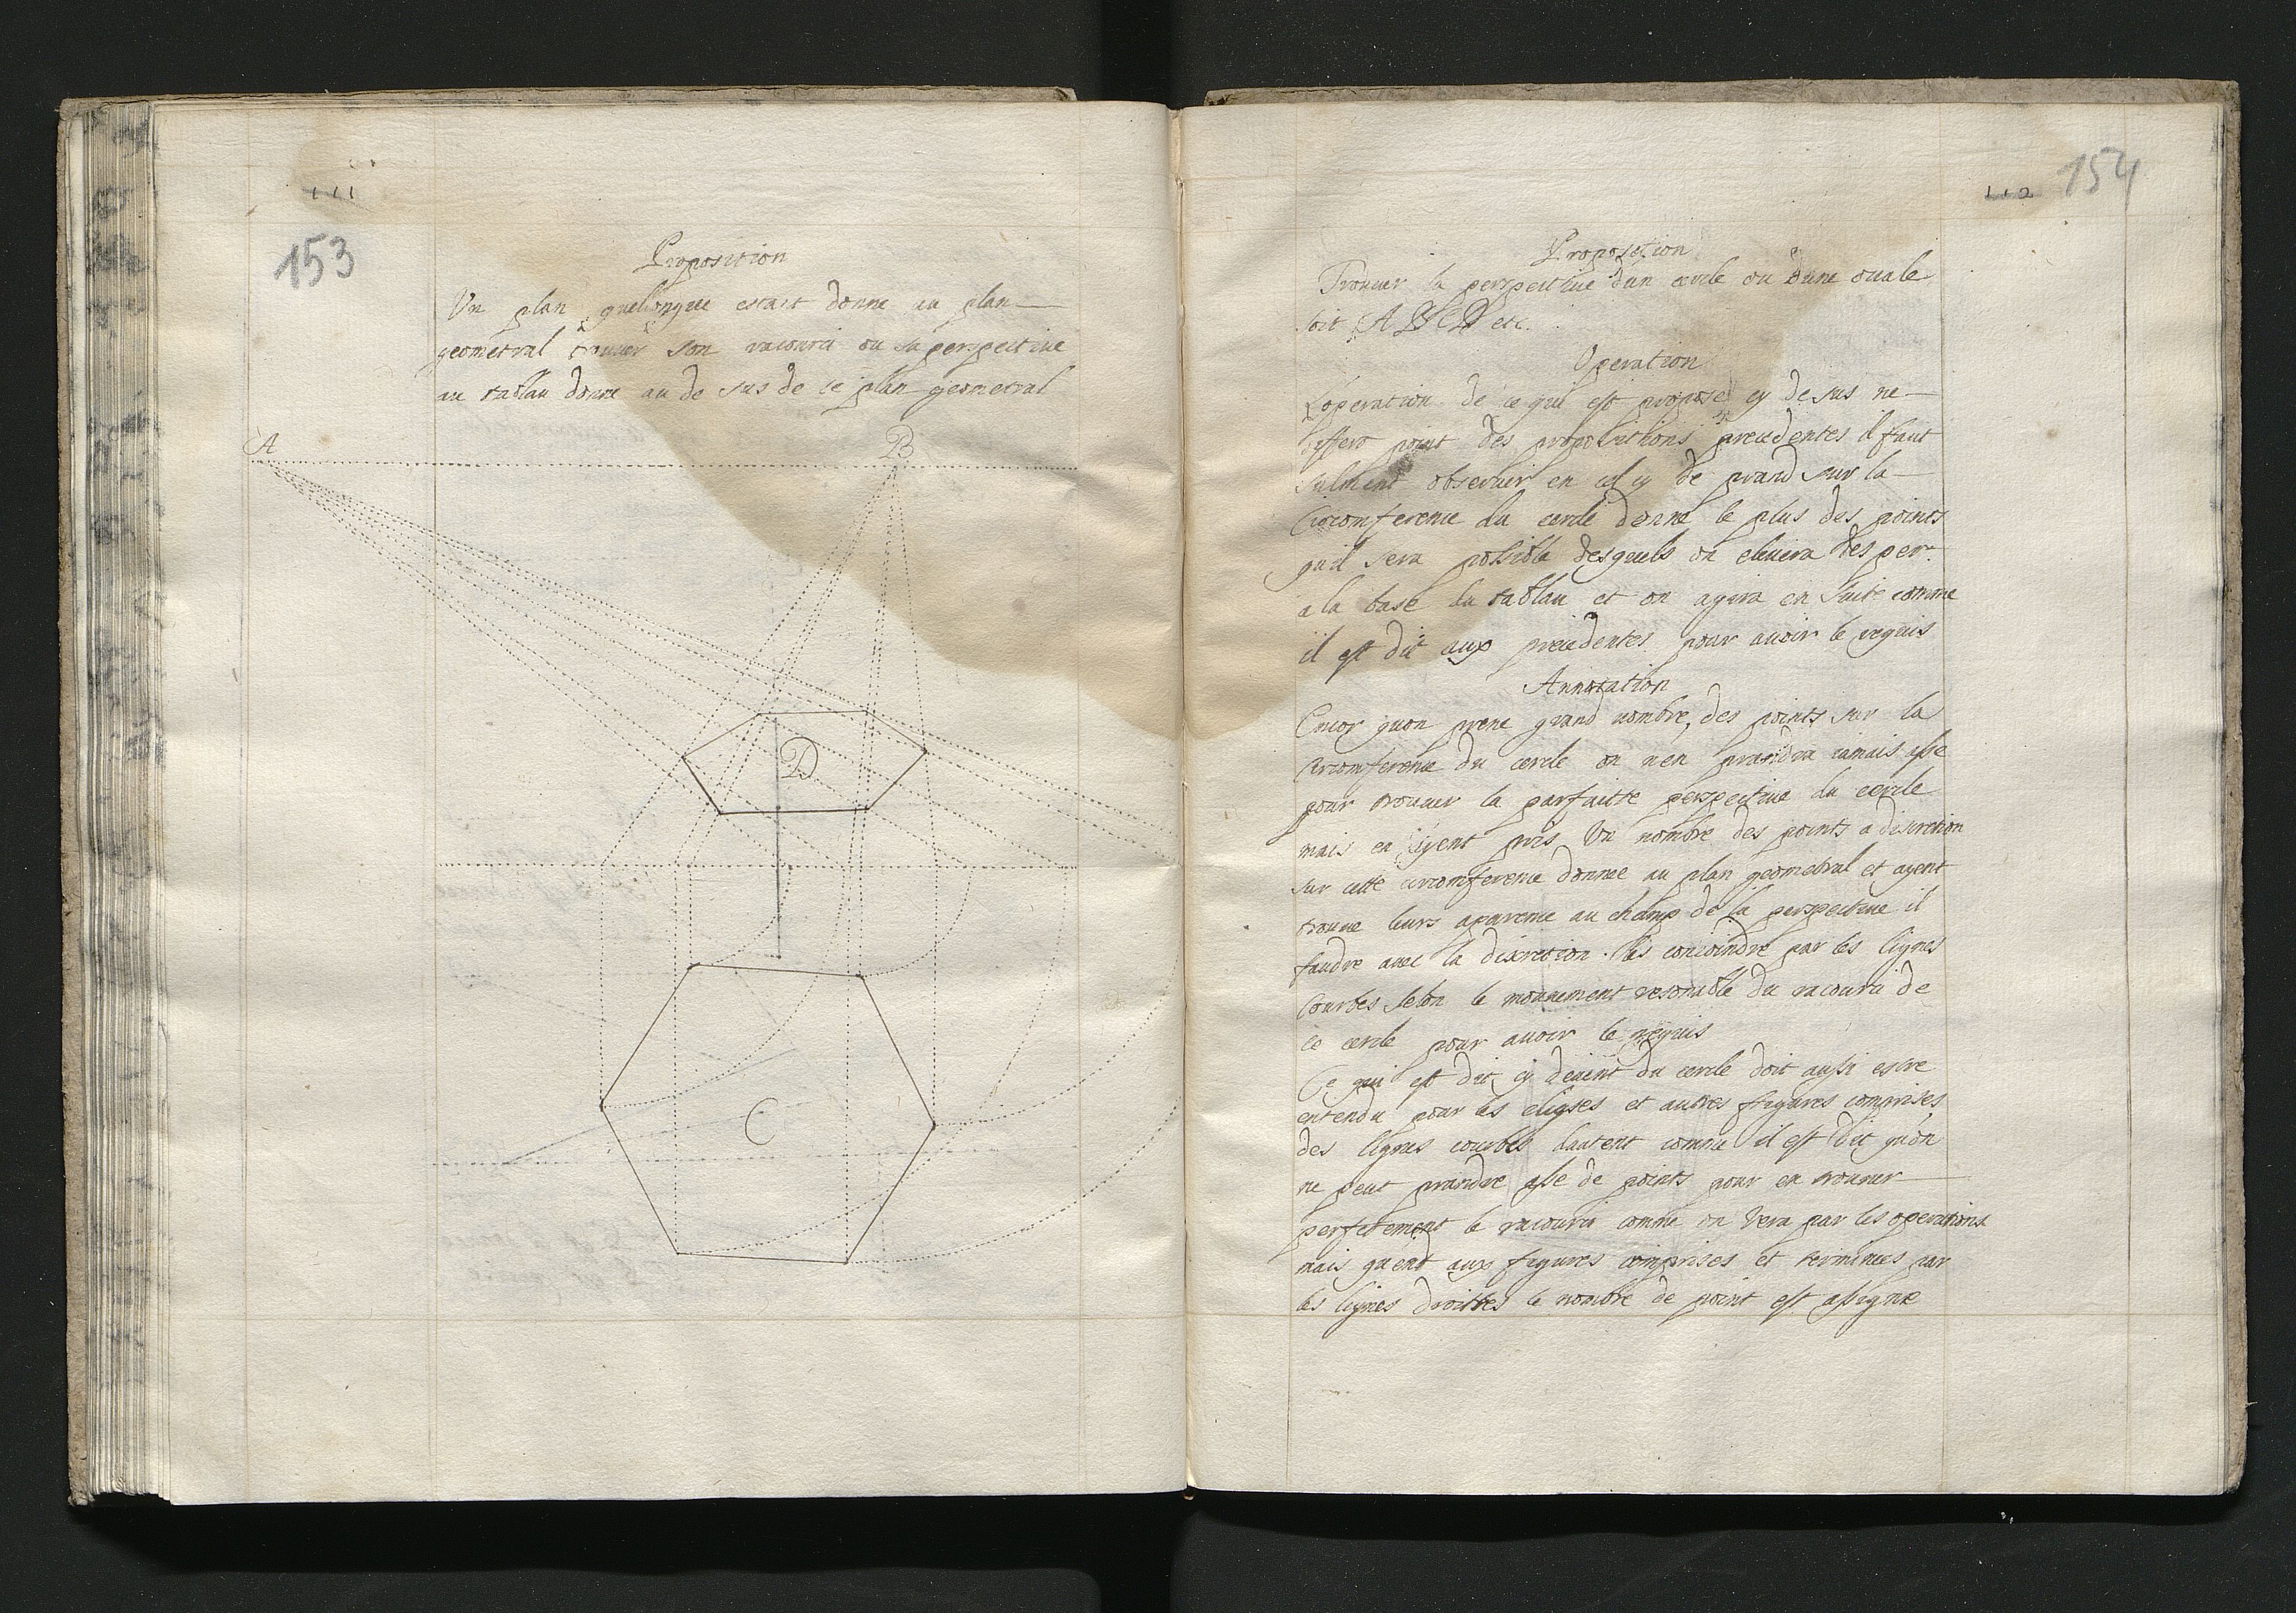 111
153
Proposition
Un plan quelconque estant donne au plan
geometral trouver son racourci ou sa perspective
au tablau donne au de sus de ce plan geometral
A
B
D
C
112
154
Proposition
Trouver la perspective dun cercle ou dune ovale
soit ABCD etc.
Operation
Loperation de ce qui est propose cy desus ne
differe point des propositions precedentes il faut
sulment observer en cel cy de prand sur la
Circomference du cercle donne le plus des points
quil sera possible desquels on elevera des per.
a la base du tablau et on agira en suite comme
il est dit aux precedentes pour avoir le requis
Annotation
Encor quon prene grand nombre, des points sur la
circomference du cercle on nen prandra iamais asse
pour trouver la parfaitte perspective du cercle
mais en ayent pris Un nombre des points a discretion
sur cette circomference donnee au plan geometral et ayent
trouve leurs aparence au champ de la perspective il
faudre avec la discretion les conioindre par les lignes
Courbes selon le mouvement resonable du racourci de
ce cercle pour avoir le requis
Ce qui est dit cy devent du cercle doit aussi estre
entendu pour les elipses et autres figures comprises
des lignes courbes dautent comme il est dit quon
ne peut prandre asse de points pour en trouver
perfetement le racourci comme on Vera par les operations
mais quent aux figures comprises et terminees par
les lignes droittes le nombre de point est assigne